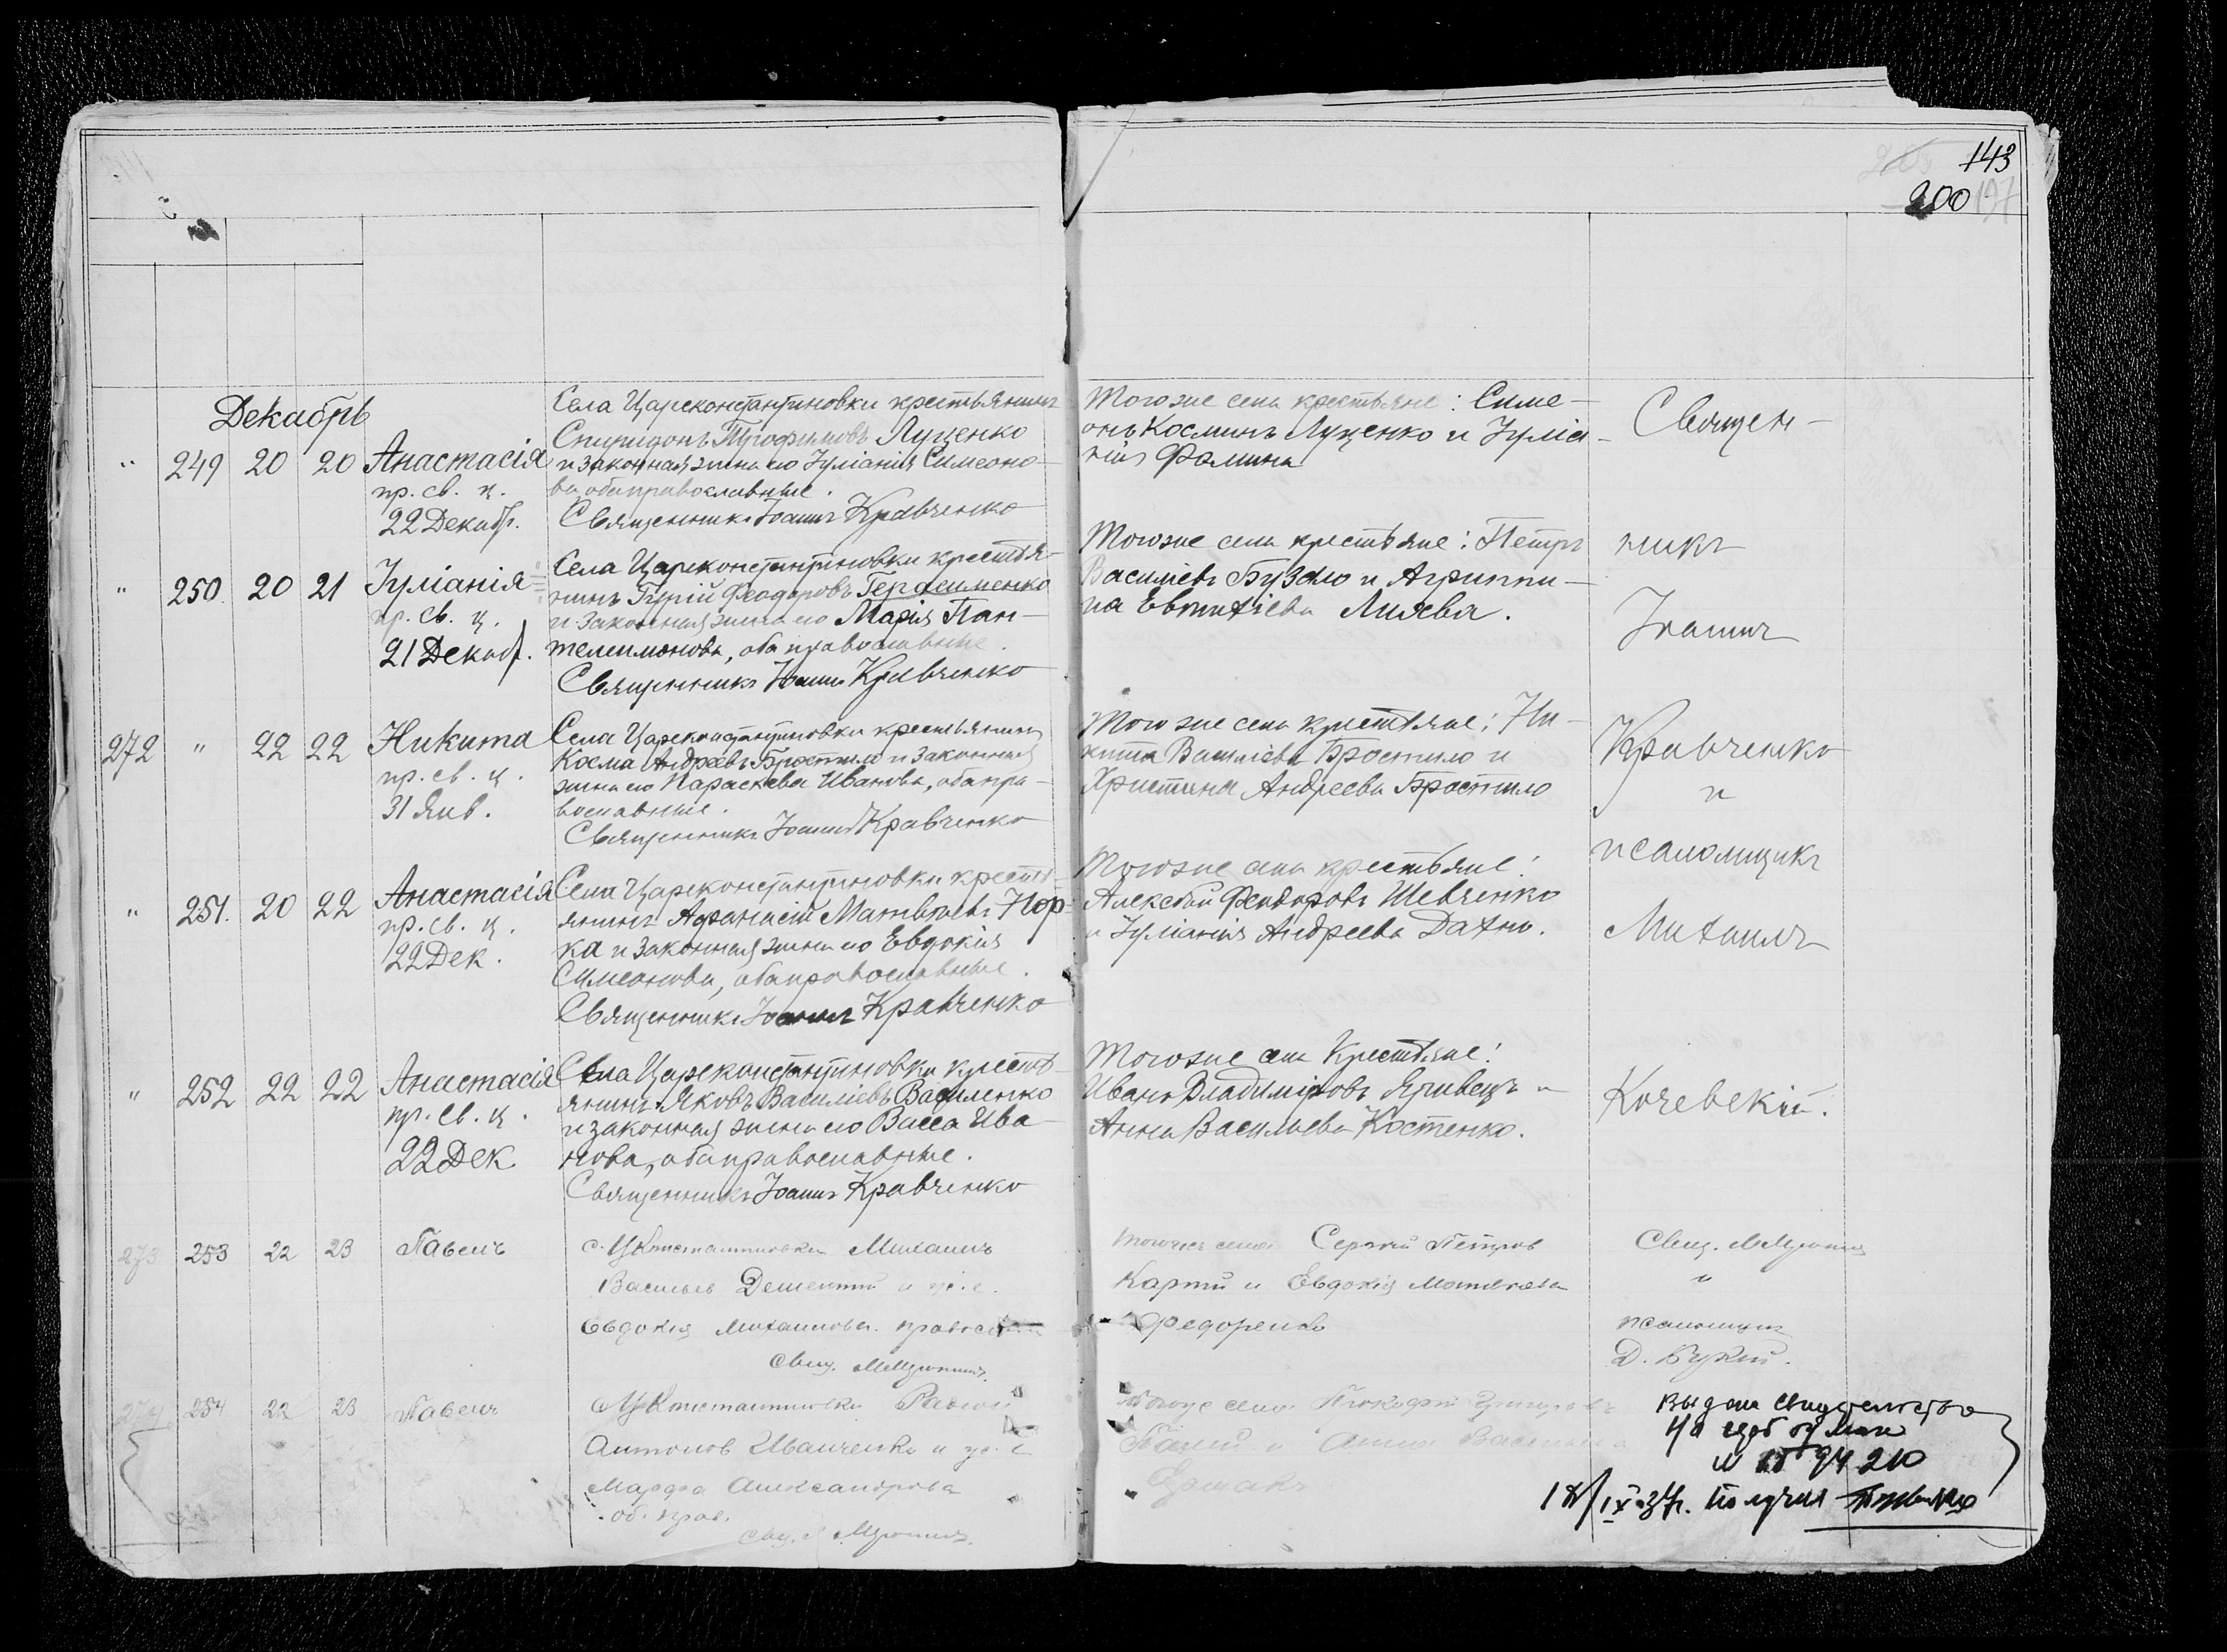 143
200 197
Декабрь
" 249 20 20 Анастасія
пр. св. ц.
22 Декабр.
Села Цареконстантиновки крестьянинъ
Спиридонъ Трофимовъ Луценко
и законная жена его Іуліанія Симеоно-
ва, оба православные.
Священникъ Іоаннъ Кравченко
Того же села крестьяне: Симе-
онъ Косминъ Луценко и Іуліа-
нія Фомина
Священ-
" 250 20 21 Іуліанія
пр. св. ц.
21 Декаб.
Села Цареконстантиновки крестья-
нинъ Гурій Феодоровъ Герасименко
и законная жена его Марія Пан-
телеимонова, оба православные.
Священникъ Іоаннъ Кравченко
Того же села крестьяне: Петръ
Василіевъ Буздло и Агриппи-
на Евтихіева Лиява.
никъ
Іоаннъ
272 " 22 22 Никита
пр. св. ц.
31 Янв.
Села Цареконстантиновки крестьянинъ
Косма Андреевъ Бростило и законная
жена его Параскева Иванова, оба пра-
вославные.
Священникъ Іоаннъ Кравченко
Того же села крестьяне: Ни-
кита Василіевъ Бростило и
Христина Андреева Бростило
Кравченко
и
псаломщикъ
" 251. 20 22 Анастасія
пр. св. ц.
22 Дек.
Села Цареконстантиновки кресть-
янинъ Афанасій Матвѣевъ Нор-
ка и законная жена его Евдокія
Симеонова, оба православные.
Священникъ Іоаннъ Кравченко
Того же села крестьяне:
Алексѣй Феодоровъ Шевченко
и Іуліанія Андреева Дахно.
Михаилъ
" 252 22 22 Анастасія
пр. св. ц.
22 Дек
Села Цареконстантиновки кресть-
янинъ Яковъ Василіевъ Василенко
и законная жена его Васса Ива-
нова, оба православные.
Священникъ Іоаннъ Кравченко
Того же села Крестьяне:
Иванъ Владиміровъ Яривецъ и
Анна Василиева Костенко.
Кочевскій.
273 253 22 23 Павелъ
с. ЦКонстантиновки Михаилъ
Васильев Дешентий и ж. е.
Евдокія Михаилова. православ
Свящ.
Того же села Сергій Петров
Карпи и Евдокія Матвѣева
Федоренко
Свящ.
и
псаломщик
Д. Букій.
274 254 22 23 Павелъ
ЦКонстантиновки
Антонов Иванченко и ж. е
Марфа Александрова
об. прав.
Свящ.
Того же села Прокофій Григоровъ
и Анна Васильева
Ермакъ
Выдано свидетельство
210
18/IX-37г. Получил